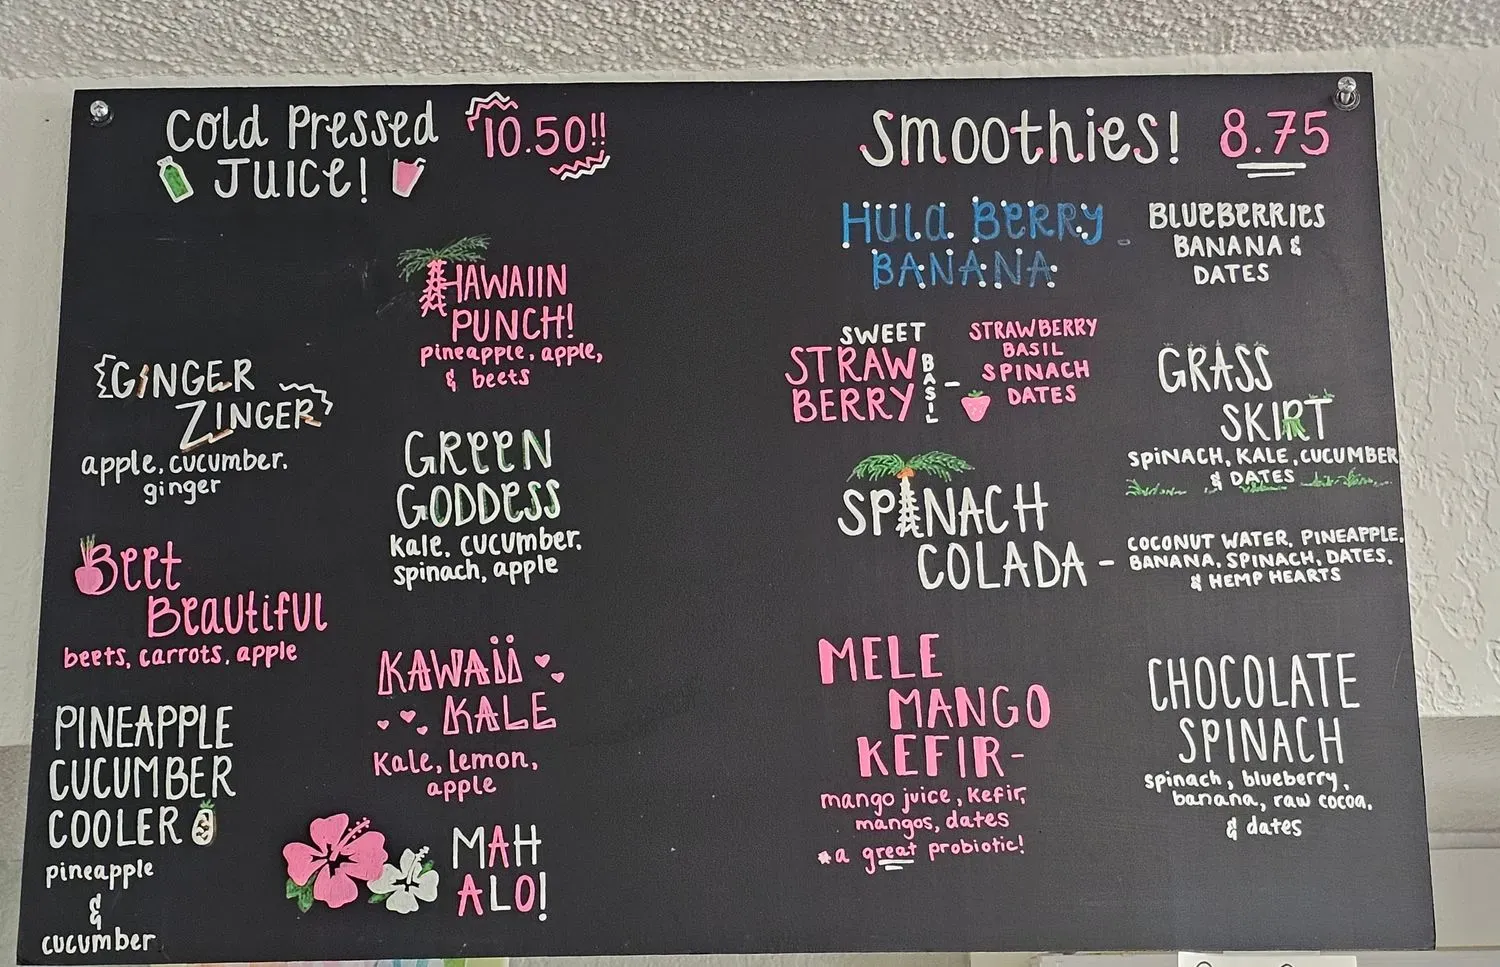 Cold Pressed
JUICE!
10.50!!
HAWAIIN
PUNCH!
pineapple, apple,
& beets
GINGER
ZINGER
apple, cucumber,
ginger
GREEN
GODDESS
kale, cucumber,
spinach, apple
Beet
Beautiful
beets, carrots, apple
KAWAII
KALE
Kale, lemon,
apple
PINEAPPLE
CUCUMBER
COOLER
pineapple
&
cucumber
MAH
ALO!
Smoothies! 8.75
HULA BERRY
BANANA
BLUEBERRIES
BANANA &
DATES
SWEET
STRAW
BERRY
BASIL
-
STRAWBERRY
BASIL
SPINACH
DATES
GRASS
SKIRT
SPINACH, KALE, CUCUMBER
& DATES
SPINACH
COLADA -
COCONUT WATER, PINEAPPLE,
BANANA, SPINACH, DATES,
& HEMP HEARTS
MELE
MANGO
KEFIR-
mango juice, kefir,
mangos, dates
*a great probiotic!
CHOCOLATE
SPINACH
spinach, blueberry,
banana, raw cocoa,
& dates